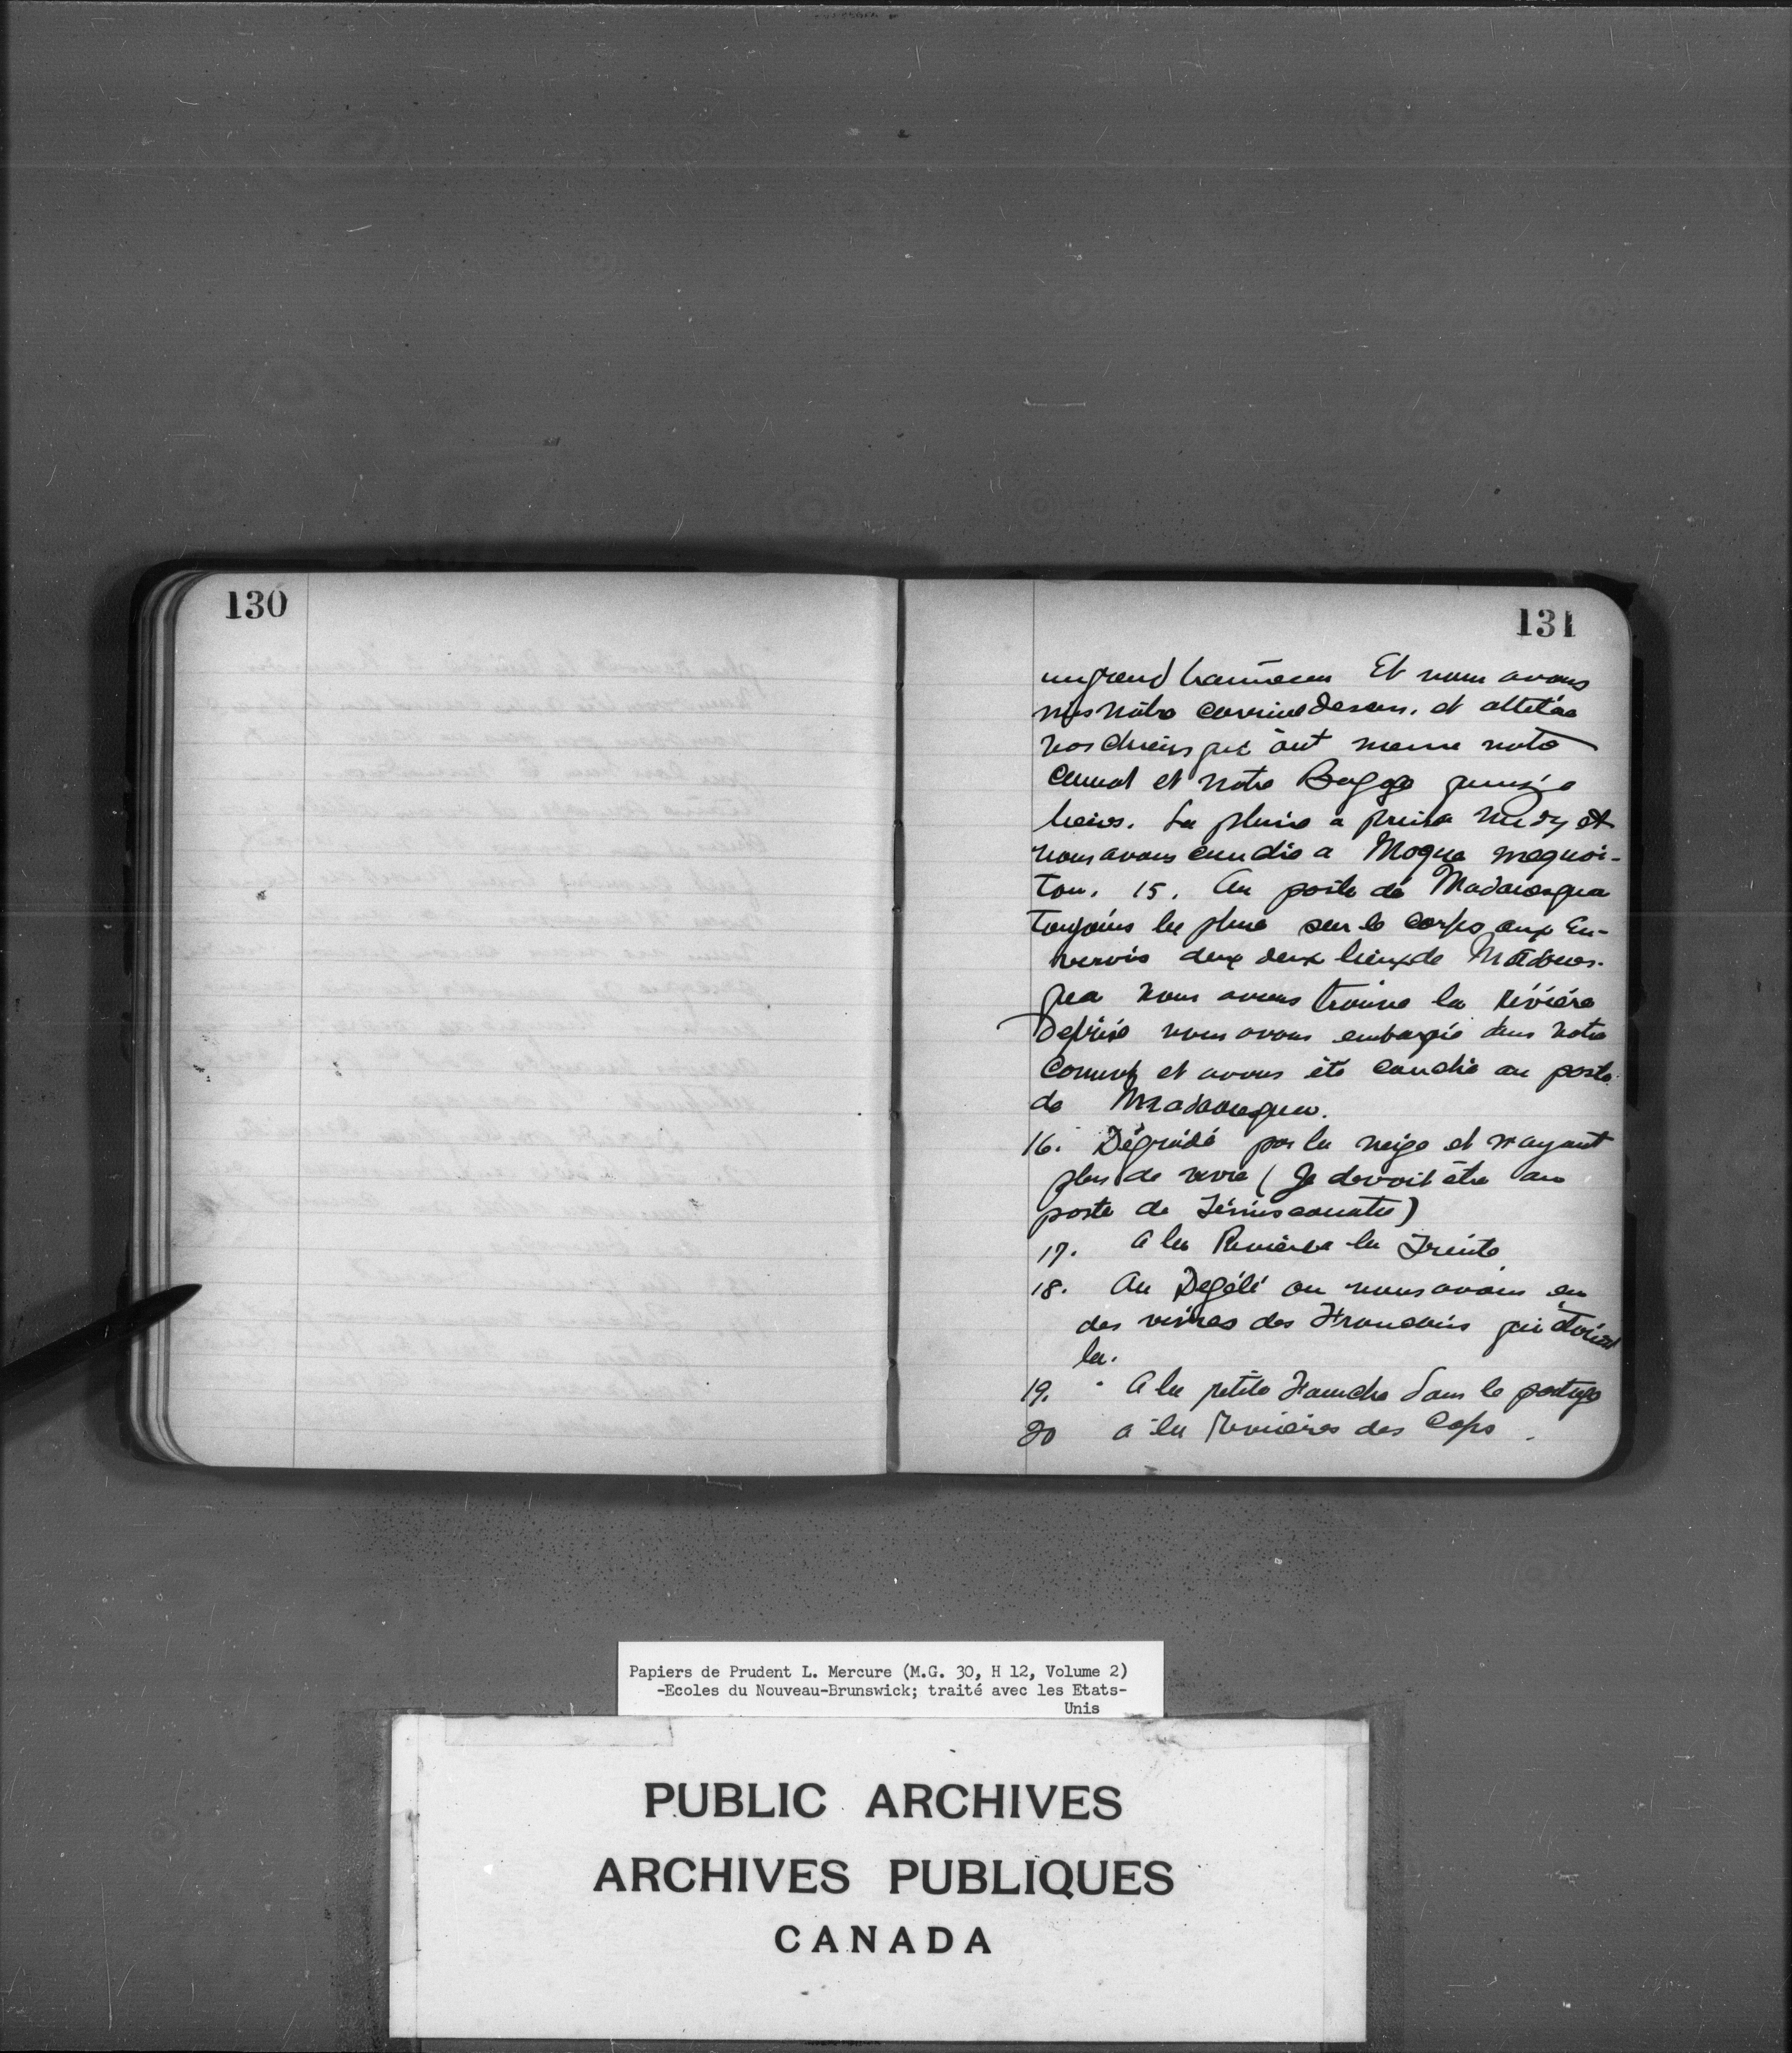 130
131
un grand traineau Et nous avons
mis nôtre dessus. et attelée
nos chiens qui ont mené notre
canot et notre Bagage
lieus. La pluie a prise Midy et
nous avons couchie a Mogua maquoi-
ton. 15. Au poste de Madaoesqua
Toujours la pluie sur le corps aux En-
verois deux lieux de Madoues-
qua nous avons trouve la rivière
Deprise nous avons embarqué dans notre
Canot et avons été couchie au poste
de Madaouesqua.
16. Dégrádé par la neige et n'ayant
plus de vivre (Je devoit être au
poste de Témiscouata)
17. A la Rivière la Truite
18. Au Degélé ou nous avons eu
des vivres des Francois qui étoient
la.
19. A la petite Fourche dans le portage
20 a la Rivières des Caps.
Papiers de Prudent L. Mercure (M.G. 30, H 12, Volume 2)
-Ecoles du Nouveau-Brunswick; traité avec les Etats-
Unis
PUBLIC ARCHIVES
ARCHIVES PUBLIQUES
CANADA